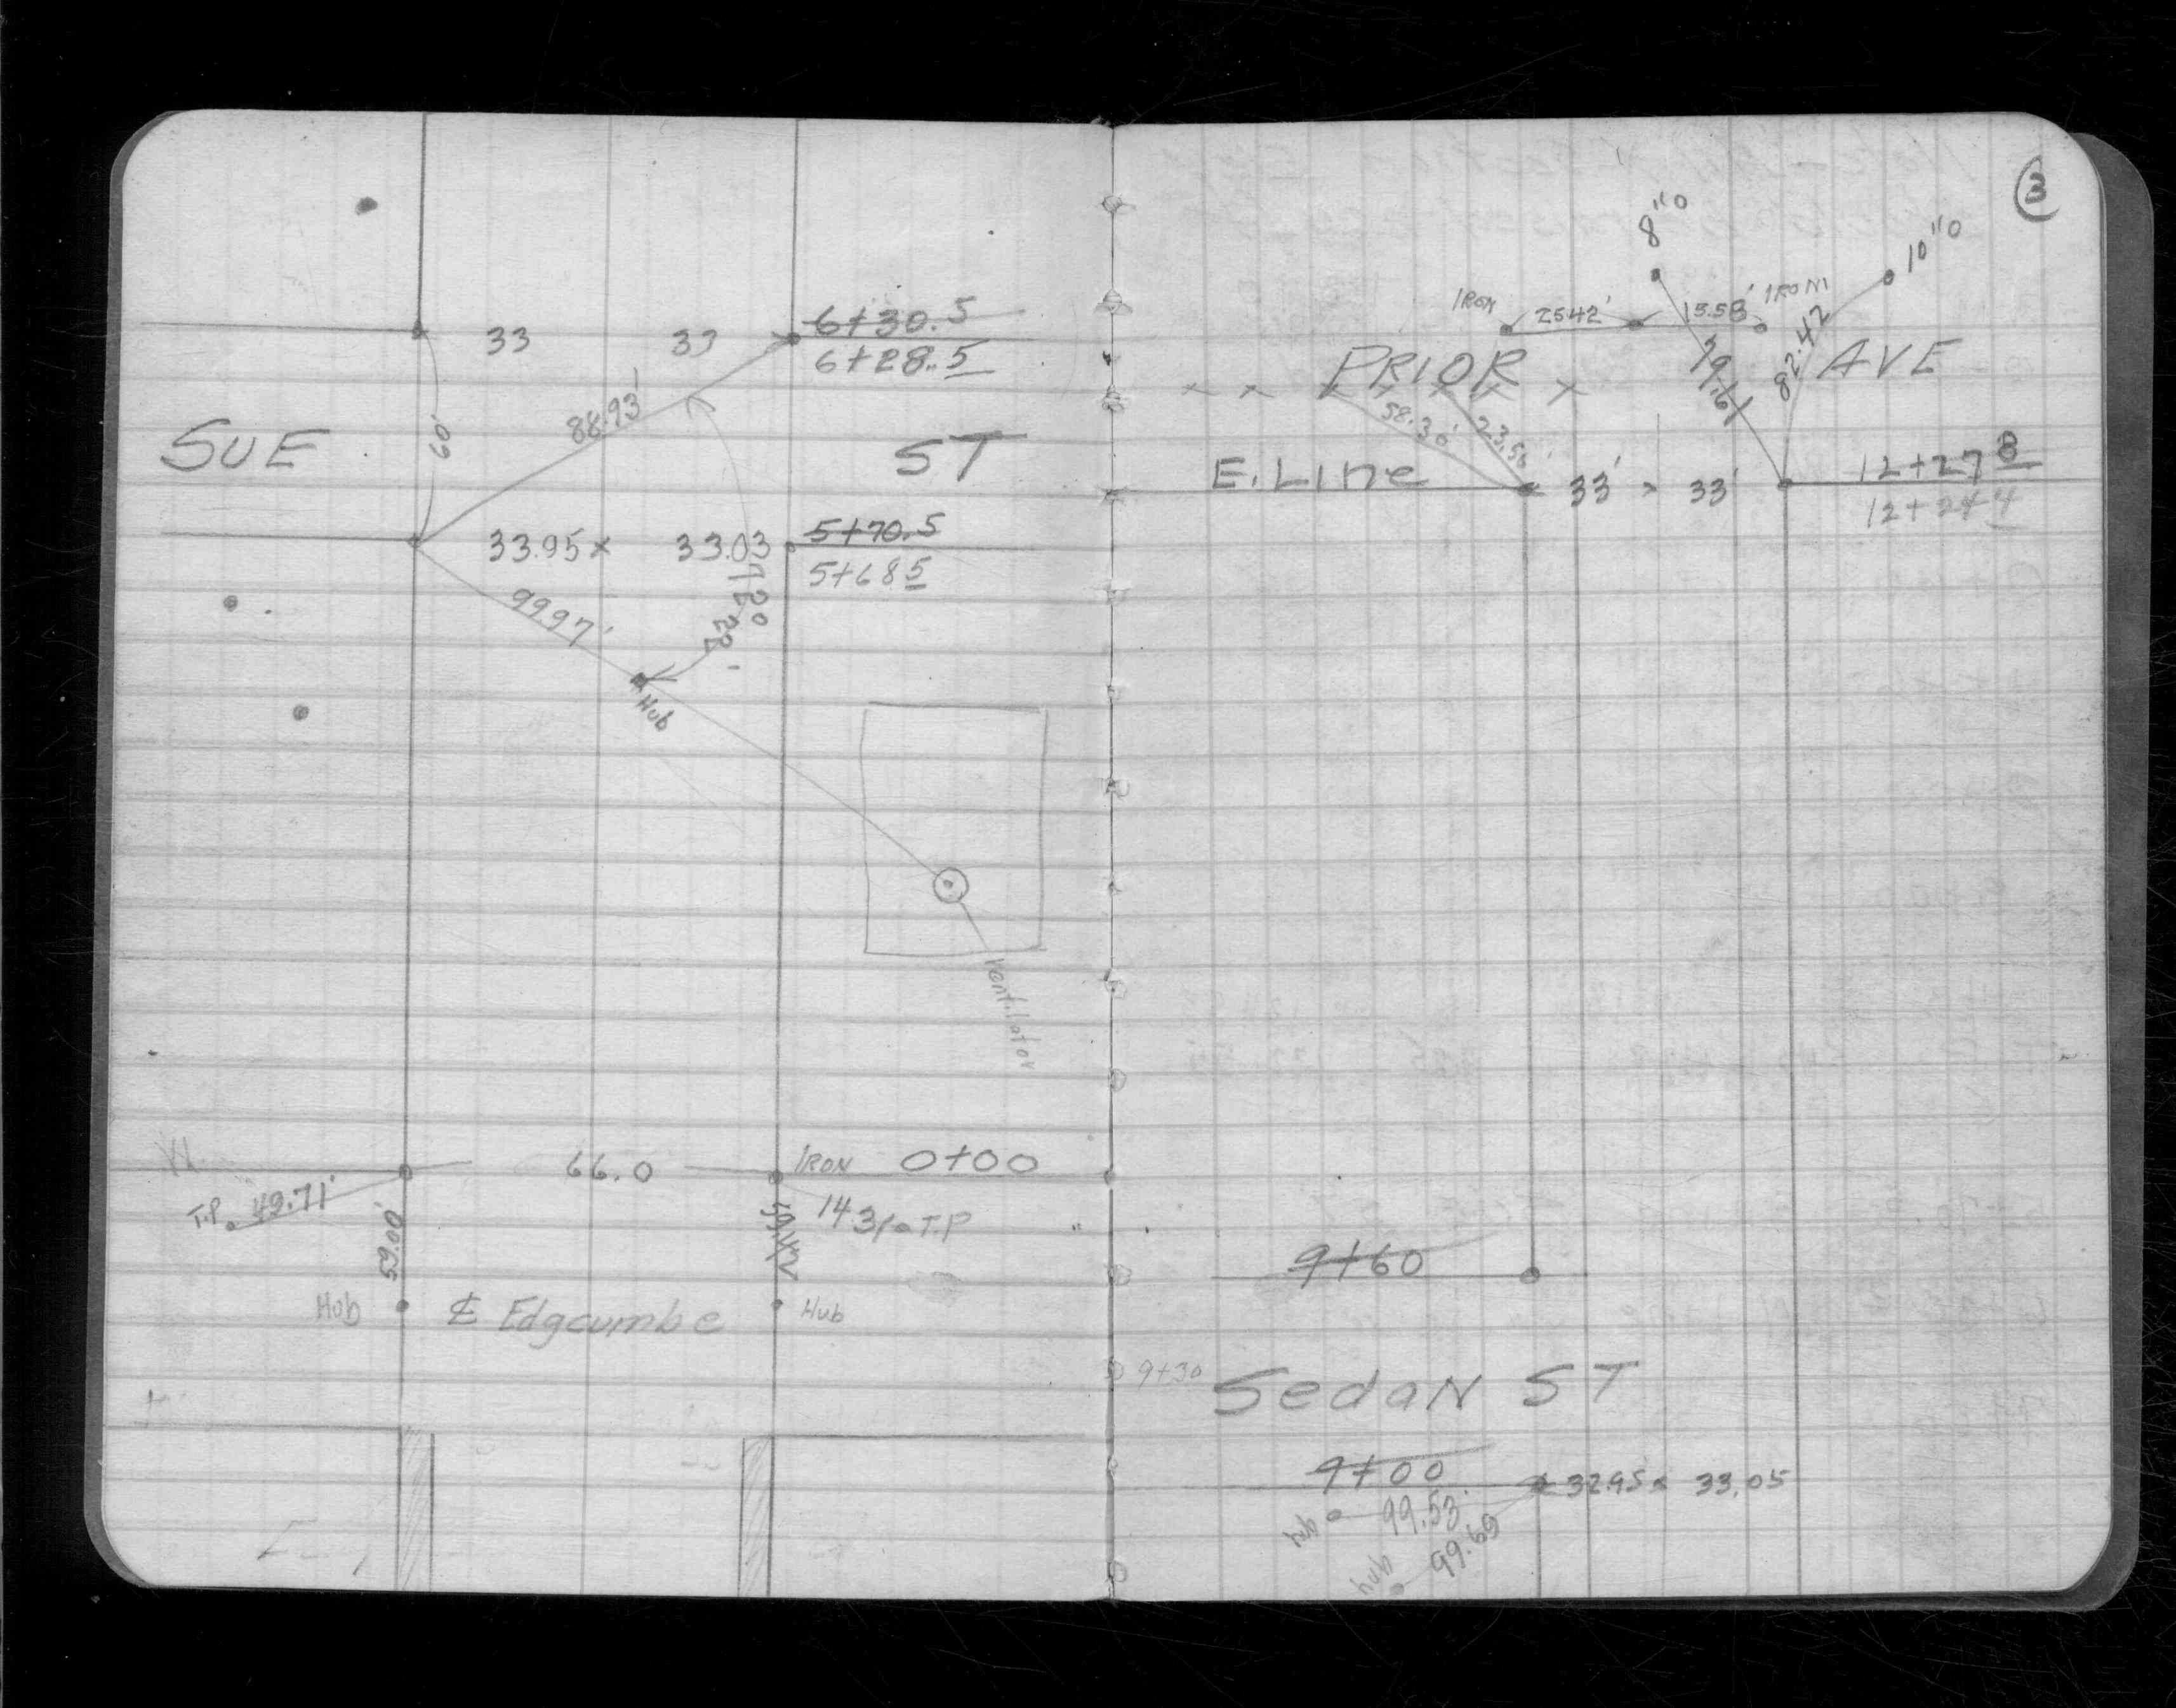 6+30.5
33 33
6+28.5
88.93'
60'
SUE ST
33.95 x 33.03
5+70.5
5+68 5
99.97'
Hub
Ventilator
66.0
IRON 0+00
T.P. 49.71'
59.00'
143 to T.P
Hub
℄ Edgcumbe
Hub
3
8"0
10"0
IRON
25.42'
15.58'
IRON
PRIOR AVE
79.61
82.42
58.30'
23.58'
E. Line
33' x 33'
12+27 8
12+24 4
9+60
9+30
Sedan ST
9+00
32.95 x 33.05
hub 99.53'
hub 99.69